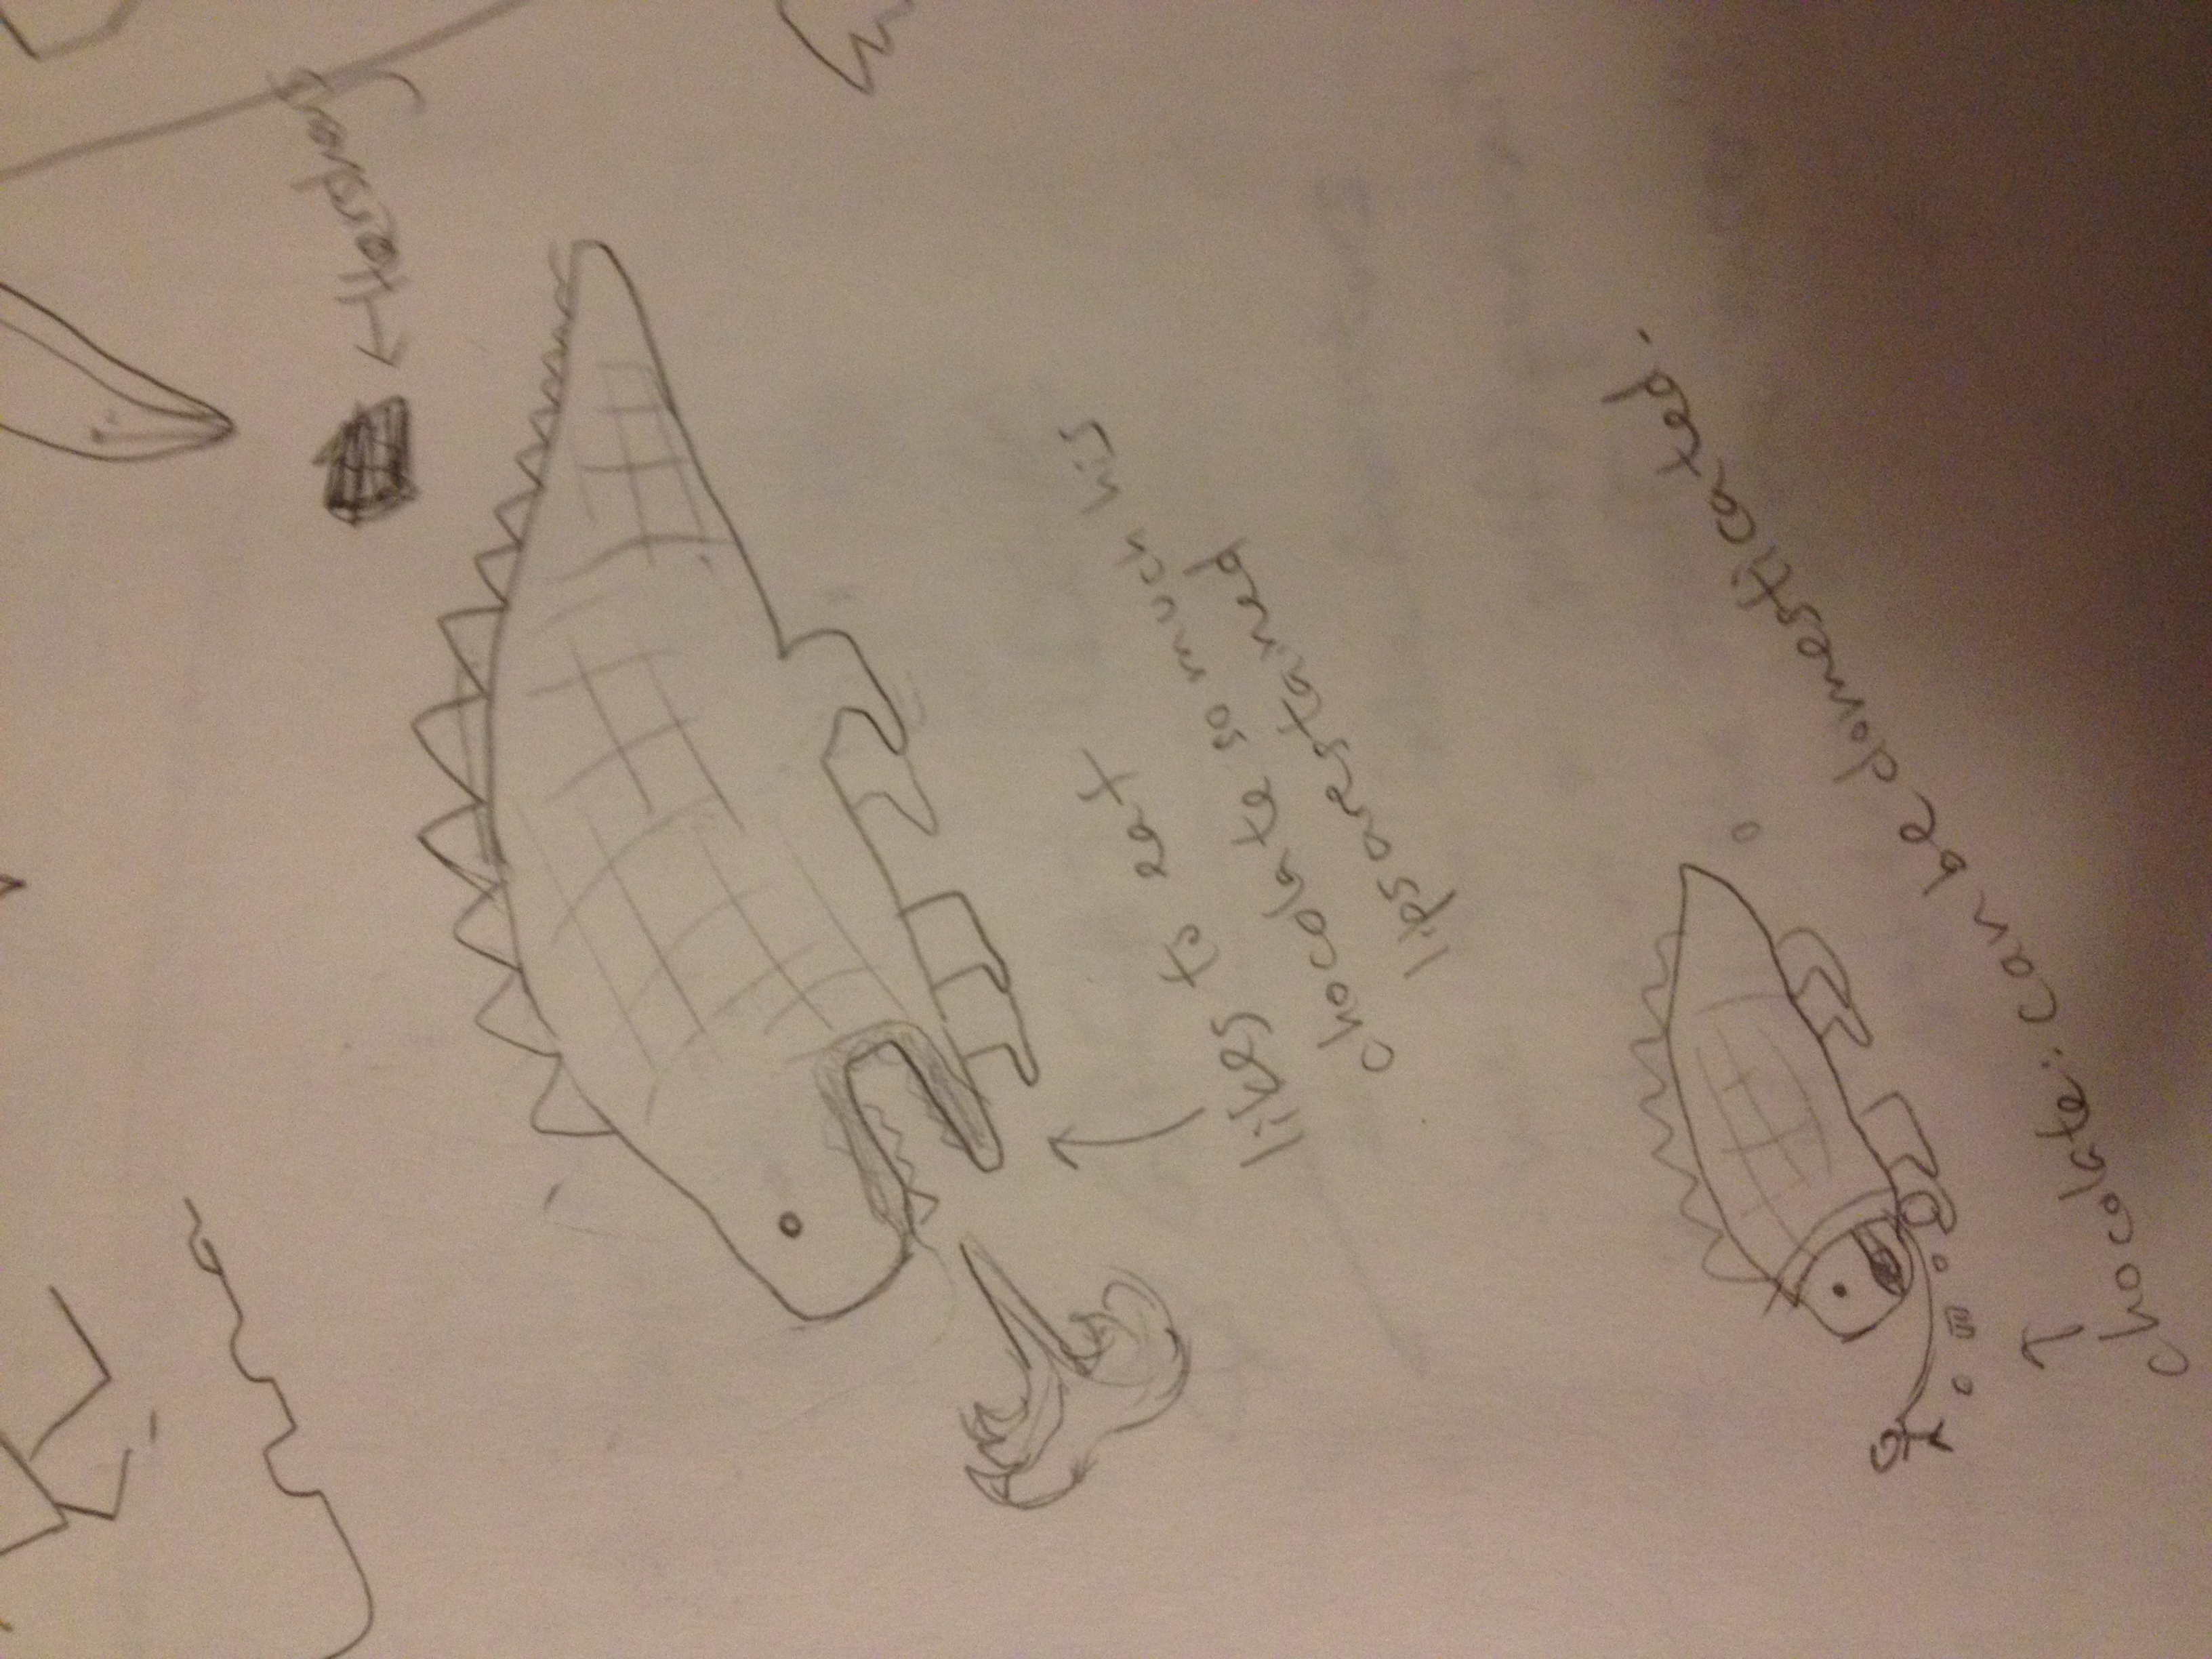 ←Hersheys
likes to eat
chocolate so much his
lips are stained
chocolate: can be domesticated.